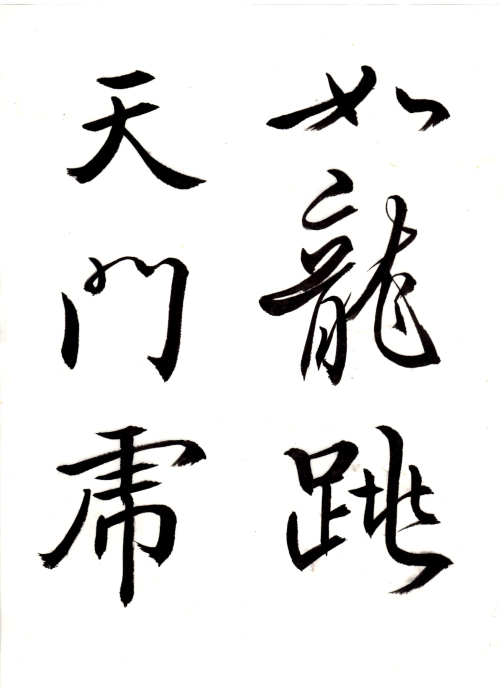 如龍跳
天門虎